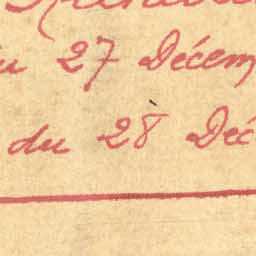 u 27 Décem
du 28 Déc